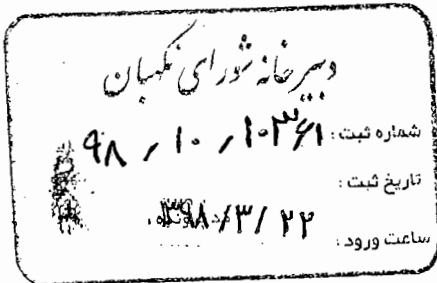 دبیرخانه شورای نگهبان
شماره ثبت: ۹۸/۱۰/۱۰۳۶۱
تاریخ ثبت:
۱۳۹۸/۳/۲۲
ساعت ورود: